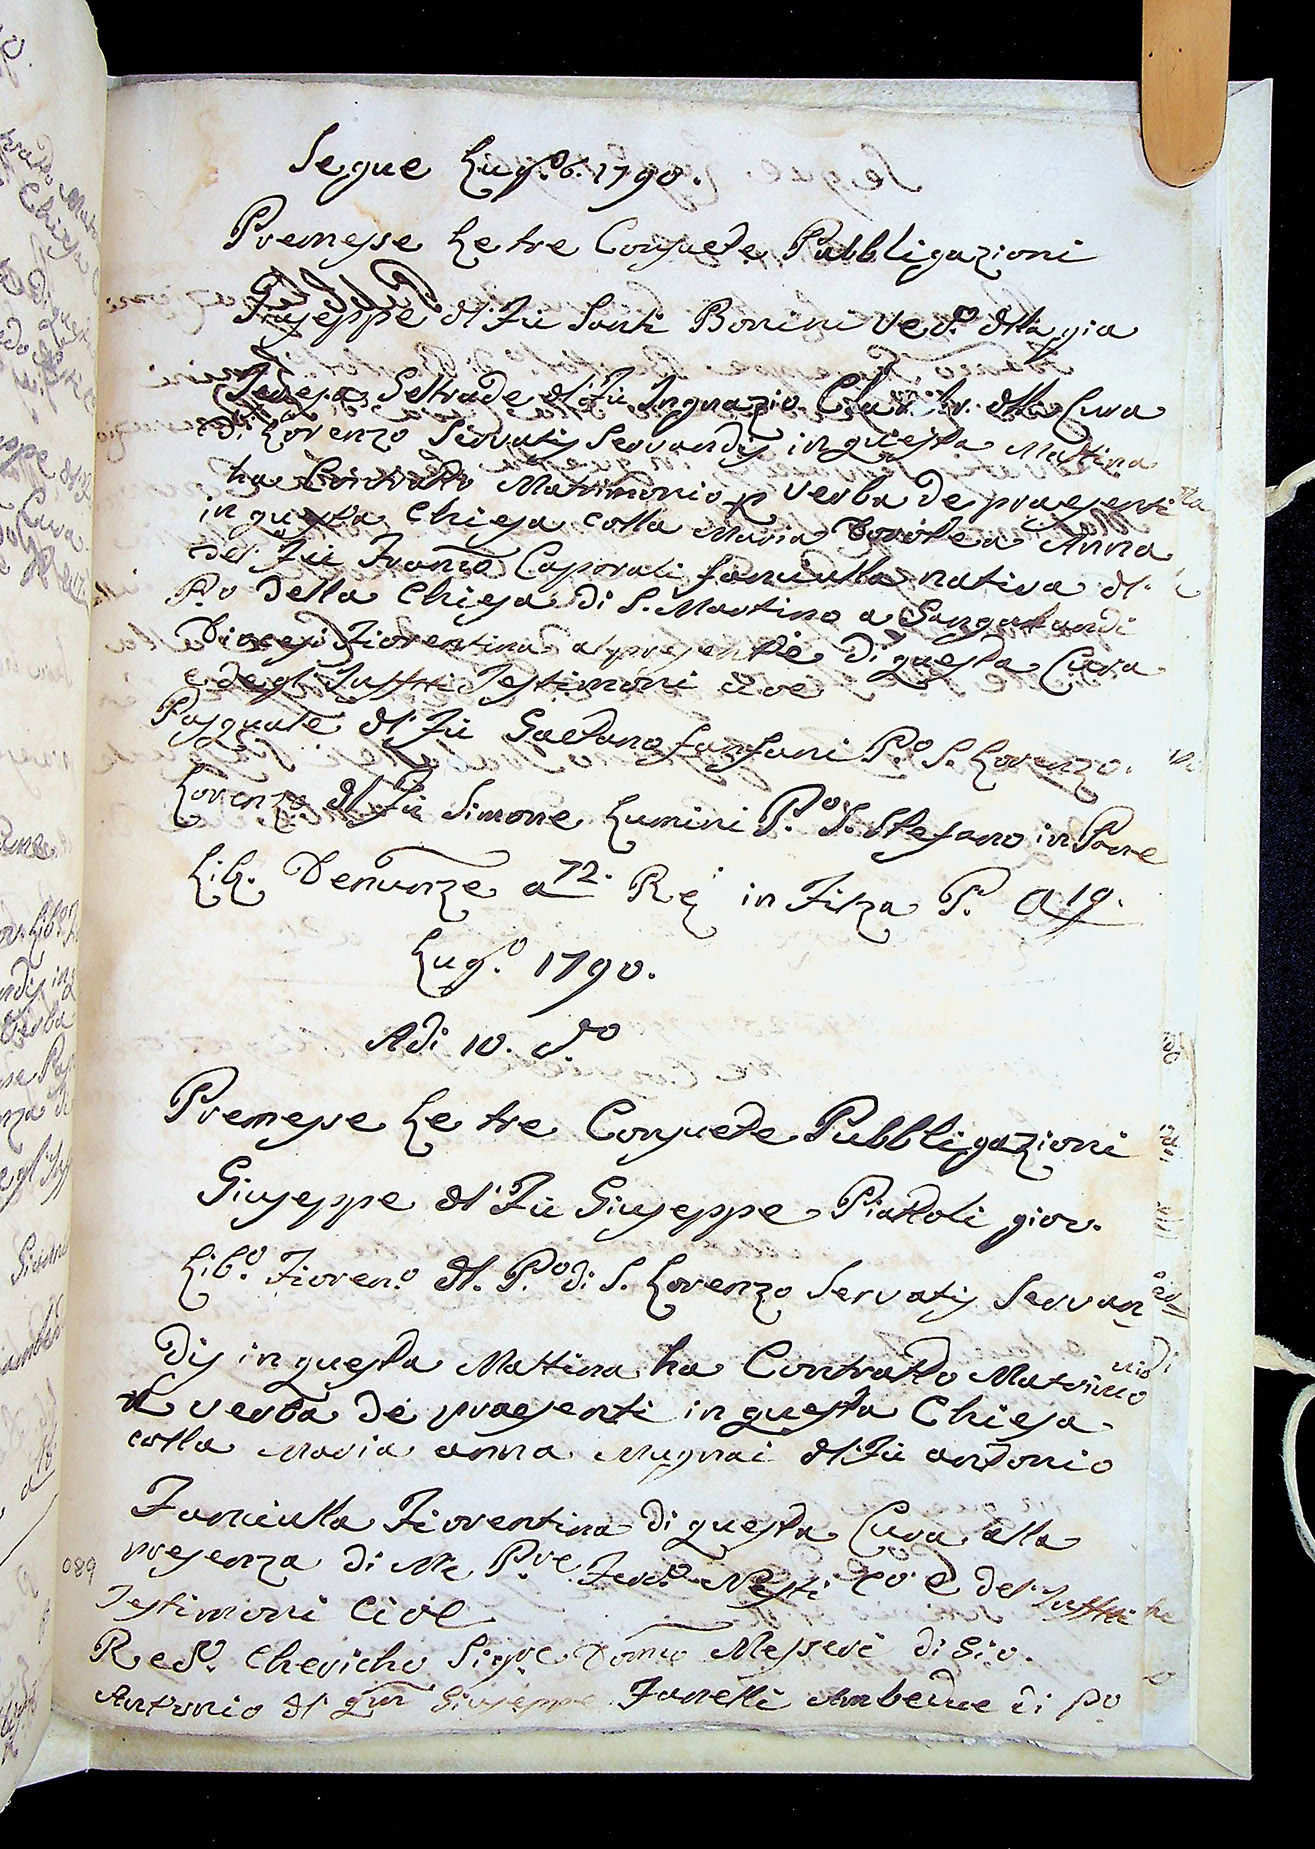 Segue Lug.º 6. 1790.
Premesse Le tre Consuete Pubbligazioni
Giuseppe dl' Fù Santi Bonini Ved.º dlla già
Teresa Geltrude dl' Fù Ingnazio dlla Cura
di Lorenzo Servatis Servandis in questa Mattina
ha Contratto Matrimonio p verba de praesenti
in questa Chiesa colla Maria Dorotea Anna
del Fù Franco Caporali fanciulla nativa dl.
P.o della Chiesa di S. Martino a Gangalandi
Diocesi Fiorentina al presente di questa Cura
e degl' Infrti Testimoni cioè
Pasquale dl' Fù Gaetano fanfani P.º S. Lorenzo.
Lorenzo dl Fù Simone Lumini P.º S. Stefano in Pane
Lib. Denunze a 72. Rè in Filza P. a 19.
Lug.º 1790.
Adi 10. d.º
Premesse Le tre Consuete Pubbligazioni
Giuseppe dl' Fù Giuseppe Piattoli giov.
Lib.º Fioren.º dl. P.º di S. Lorenzo Servatis Servan
dis in questa Mattina ha Contratto Matrimo
nio
p verba de praesenti in questa Chiesa
colla Maria anna Mugnai dl' Fù antonio
Fanciulla Fiorentina di questa Cura alla
presenza di Me P.re Ferd.º Nesti Co e del' Infrtti
Testimoni Cioè
Red.º Chericho Sig.re Domco Messeri di Gio.
Antonio dl qm Giuseppe Fanelli Ambedue di po
089